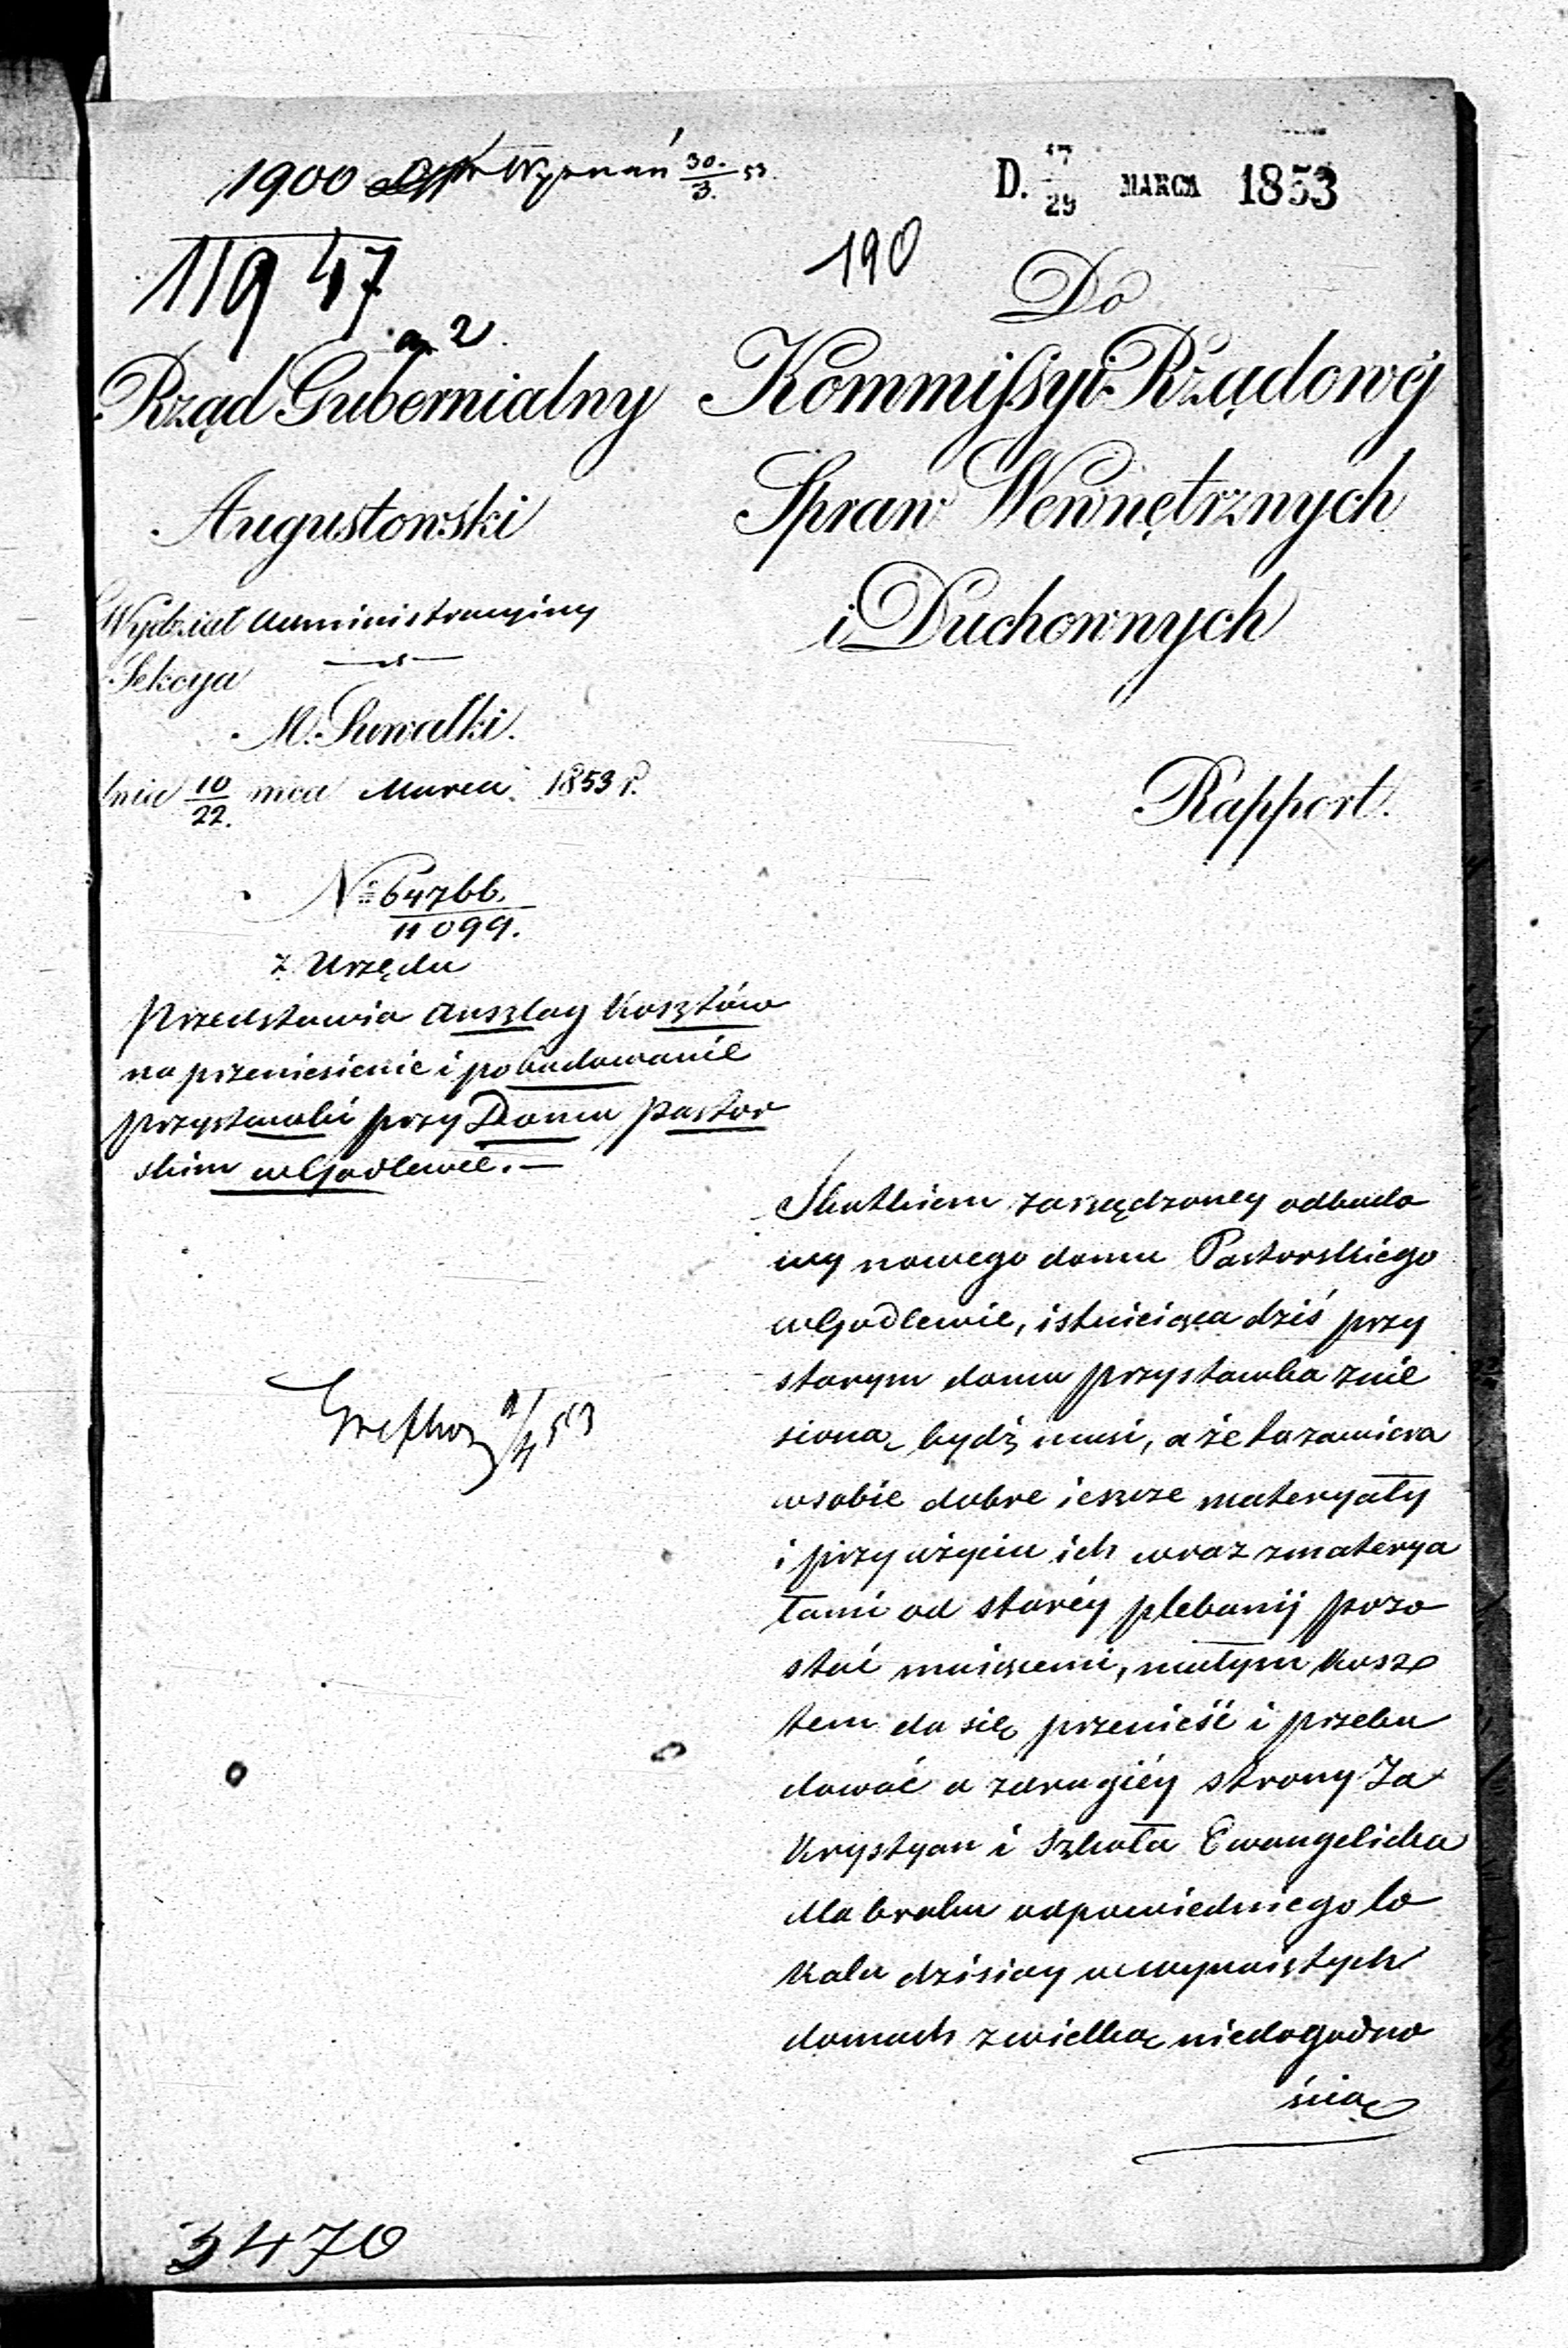 1900 Wyznań 30./3. 53.
D. 17/29 MARCA 1853
11947
a. 2.
190
Rząd Gubernialny
Augustowski
Wydział Administracyiny
Sekcya
M. Suwałki.
dnia 10/22. mca Marca 1853 r.
No 64766.
11099.
z Urzędu
Przedstawia Anszlag kosztów
na przeniesienie i pobudowanie
przystawki przy Domu Pastor
skim w Godlewie.—
Do
Kommissyi Rządowéj
Spraw Wewnętrznych
i Duchownych
Rapport.
Skutkiem zarządzoney odbudo
wy nowego domu Pastorskiego
w Godlewie, istnieiąca dziś przy
starym domu przystawka znie
sioną bydź musi, a że ta zawiera
w sobie dobre ieszcze materyały
i przy użyciu ich wraz z materya
łami od staréy plebanij pozo
stać maiącemi, małym kosz
tem da się przenieść i przebu
dować a z drugiéy strony Za
krystyan i Szkoła Ewangelicka
dla braku odpowiedniego lo
kalu dzisiay w wynaiętych
domach z wielką niedogodno
ścią
53
3470